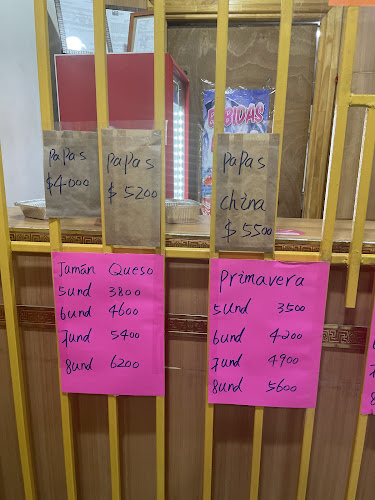 BEBIDAS
papas
$4000
papas
$5200
papas
china
$5500
Jamán Queso
5und 3800
6und 4600
7und 5400
8und 6200
Primavera
5und 3500
6und 4200
7und 4900
8und 5600